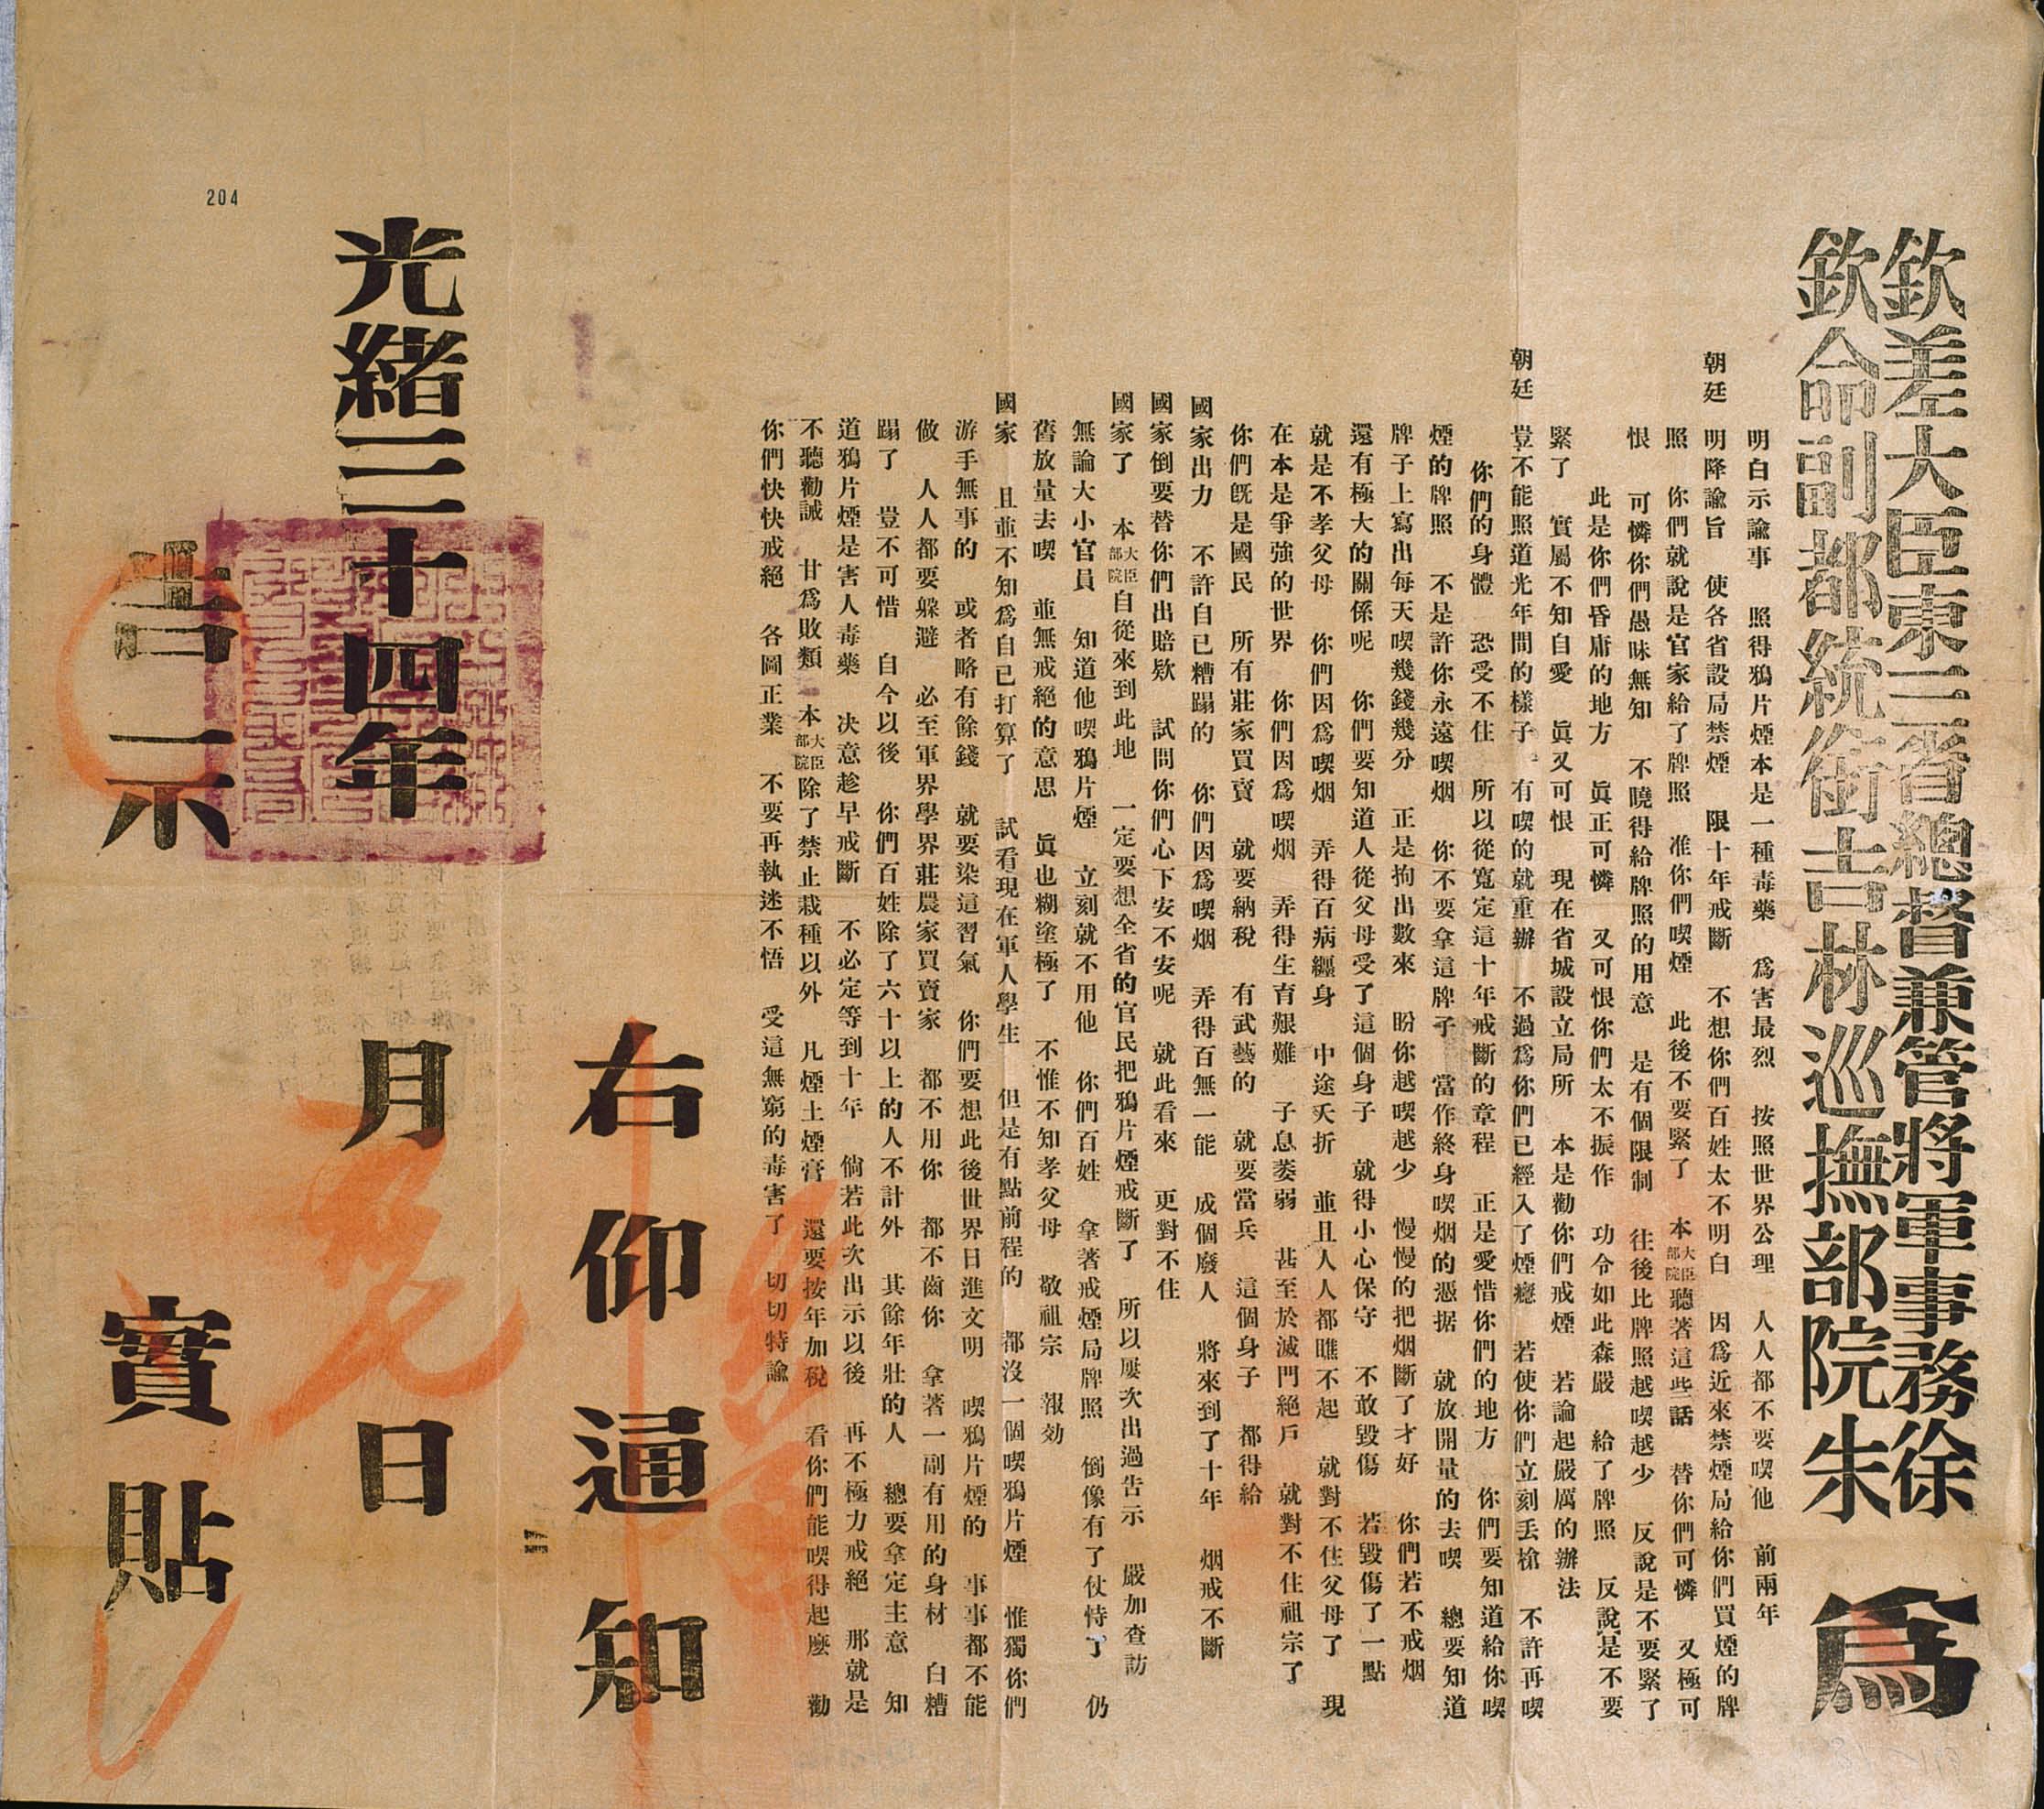 欽差大臣東三省總督兼管將軍事務徐
欽命副都統銜吉林巡撫部院朱
爲
明白示諭事 照得鴉片煙本是一種毒藥 爲害最烈 按照世界公理 人人都不要喫他 前兩年
朝廷 明降諭旨 使各省設局禁煙 限十年戒斷 不想你們百姓太不明白 因爲近來禁煙局給你們買煙的牌
照 你們就說是官家給了牌照 准你們喫煙 此後不要緊了 本大臣部院聽著這些話 替你們可憐 又極可
恨 可憐你們愚昧無知 不曉得給牌照的用意 是有個限制 往後比牌照越喫越少 反說是不要緊了
此是你們昏庸的地方 眞正可憐 又可恨你們太不振作 功令如此森嚴 給了牌照 反說是不要
緊了 實屬不知自愛 眞又可恨 現在省城設立局所 本是勸你們戒煙 若論起嚴厲的辦法
朝廷 豈不能照道光年間的樣子 有喫的就重辦 不過爲你們已經入了煙癮 若使你們立刻丢槍 不許再喫
你們的身體 恐受不住 所以從寬定這十年戒斷的章程 正是愛惜你們的地方 你們要知道給你喫
煙的牌照 不是許你永遠喫烟 你不要拿這牌子 當作終身喫烟的憑据 就放開量的去喫 總要知道
牌子上寫出每天喫幾錢幾分 正是拘出數來 盼你越喫越少 慢慢的把烟斷了才好 你們若不戒烟
還有極大的關係呢 你們要知道人從父母受了這個身子 就得小心保守 不敢毀傷 若毀傷了一點
就是不孝父母 你們因爲喫烟 弄得百病纏身 中途夭折 並且人人都瞧不起 就對不住父母了 現
在本是爭強的世界 你們因爲喫烟 弄得生育艱難 子息萎弱 甚至於滅門絕戶 就對不住祖宗了
你們旣是國民 所有莊家買賣 就要納稅 有武藝的 就要當兵 這個身子 都得給
國家出力 不許自已糟蹋的 你們因爲喫烟 弄得百無一能 成個廢人 將來到了十年 烟戒不斷
國家倒要替你們出賠欵 試問你們心下安不安呢 就此看來 更對不住
國家了 本大臣部院自從來到此地 一定要想全省的官民把鴉片煙戒斷了 所以屢次出過告示 嚴加查訪
無論大小官員 知道他喫鴉片煙 立刻就不用他 你們百姓 拿著戒煙局牌照 倒像有了仗恃了 仍
舊放量去喫 並無戒絕的意思 眞也糊塗極了 不惟不知孝父母 敬祖宗 報効
國家 且並不知爲自已打算了 試看現在軍人學生 但是有點前程的 都沒一個喫鴉片煙 惟獨你們
游手無事的 或者略有餘錢 就要染這習氣 你們要想此後世界日進文明 喫鴉片煙的 事事都不能
做 人人都要躲避 必至軍界學界莊農家買賣家 都不用你 都不齒你 拿著一副有用的身材 白糟
蹋了 豈不可惜 自今以後 你們百姓除了六十以上的人不計外 其餘年壯的人 總要拿定主意 知
道鴉片煙是害人毒藥 决意趁早戒斷 不必定等到十年 倘若此次出示以後 再不極力戒絕 那就是
不聽勸誡 甘爲敗類 本大臣部院除了禁止栽種以外 凡煙土煙膏 還要按年加稅 看你們能喫得起麼 勸
你們快快戒絕 各圖正業 不要再執迷不悟 受這無窮的毒害了 切切特諭
右仰通知
光緒三十四年 月 日
告示
實貼
204